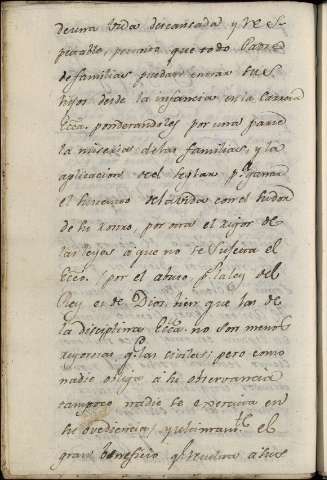 deuna vida descansada y res-
petable, para que todo Padre
de familias puedan entrar sus
hijos desde la infancia en la Carrera
Ecca. ponderandoles por una parte
la miseria delas familias, y la
aplicacion del seglar pa. ganar
el sustento delavida con el sudor
de su rostro, por otra el rigor de
las leyes a que no se sujeta el
Ecco. por el abuso la ley del
Rey es de Dios, bien que las de
la disciplina Ecca. no son menos
rigorosas q. las civiles; pero como
nadie obliga á su observancia
tampoco nadie se exercita en
su ovediencia, y ultimamte. el
gran beneficio q. resulta a sus